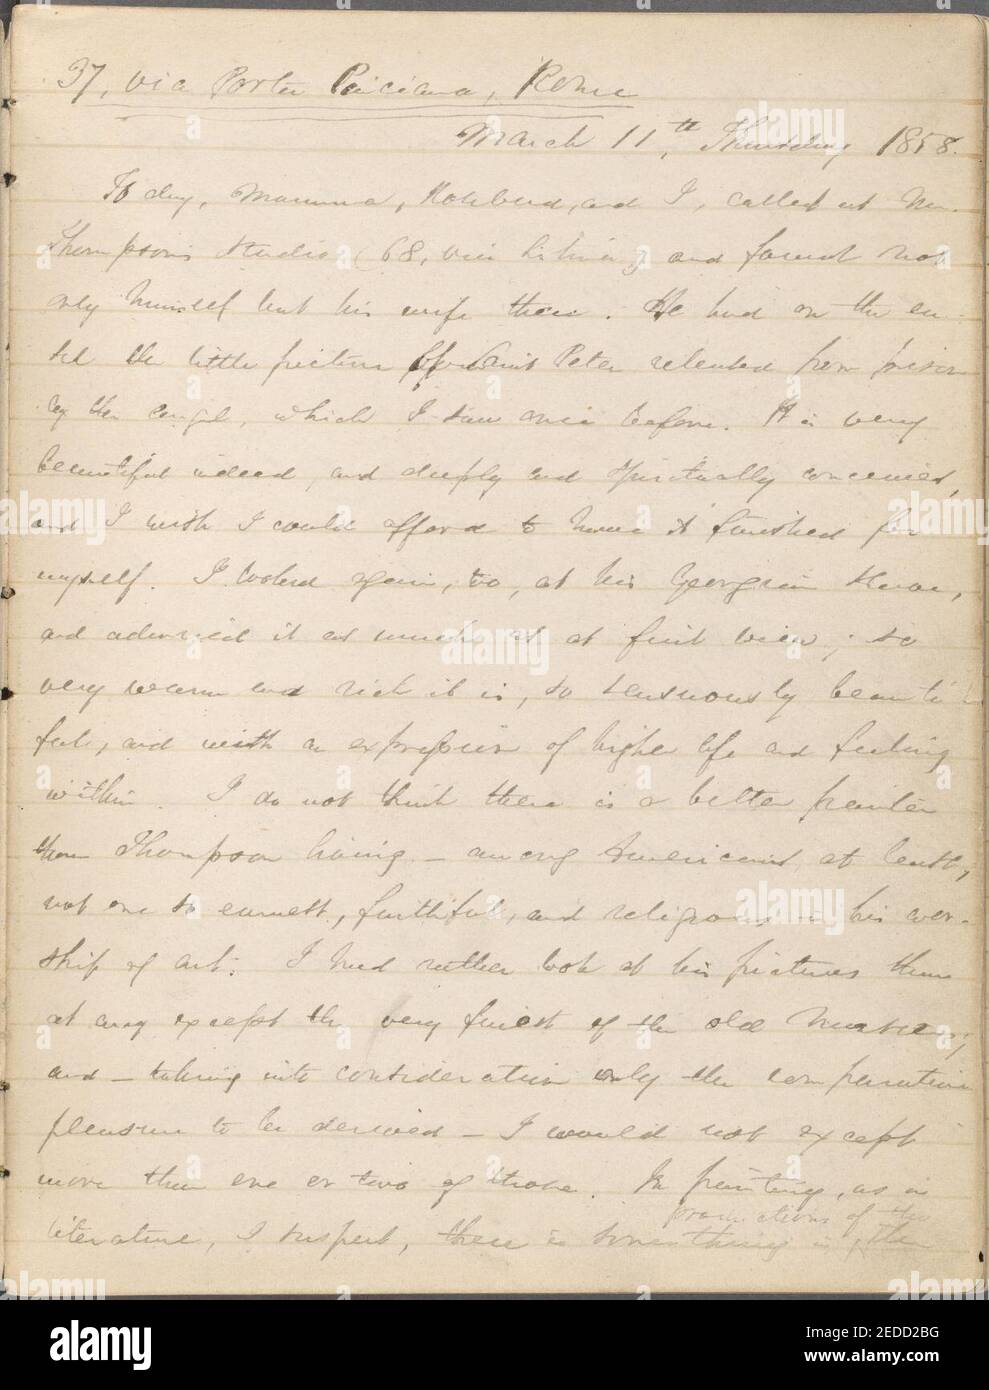 37, via Porta Pinciana, Rome
March 11th, Thursday 1858.
To day, Mamma, Rosebud, and I, called at Mr.
Thompson's studio (68, via Sistina) and found not
only himself but his wife there. He had on the ea-
sel the little picture of Saint Peter released from prison
by the angel, which I saw once before. It is very
beautiful indeed, and deeply and spiritually conceived,
and I wish I could afford to have it finished for
myself. I looked again, too, at his Georgian slave,
and admired it as much as at first view; so
very warm and rich it is, so sensuously beauti-
ful, and with an expression of higher life and feeling
within. I do not think there is a better painter
than Thompson living — among Americans at least;
not one so earnest, faithful, and religious in his wor-
ship of art. I had rather look at his pictures than
at any except the very finest of the old Masters;
and — taking into consideration only the comparative
pleasure to be derived — I would not except
more than one or two of those. In painting, as in
literature, I suspect, there is something in the
productions of the
alamy
Image ID: 2EDD2BG
www.alamy.com